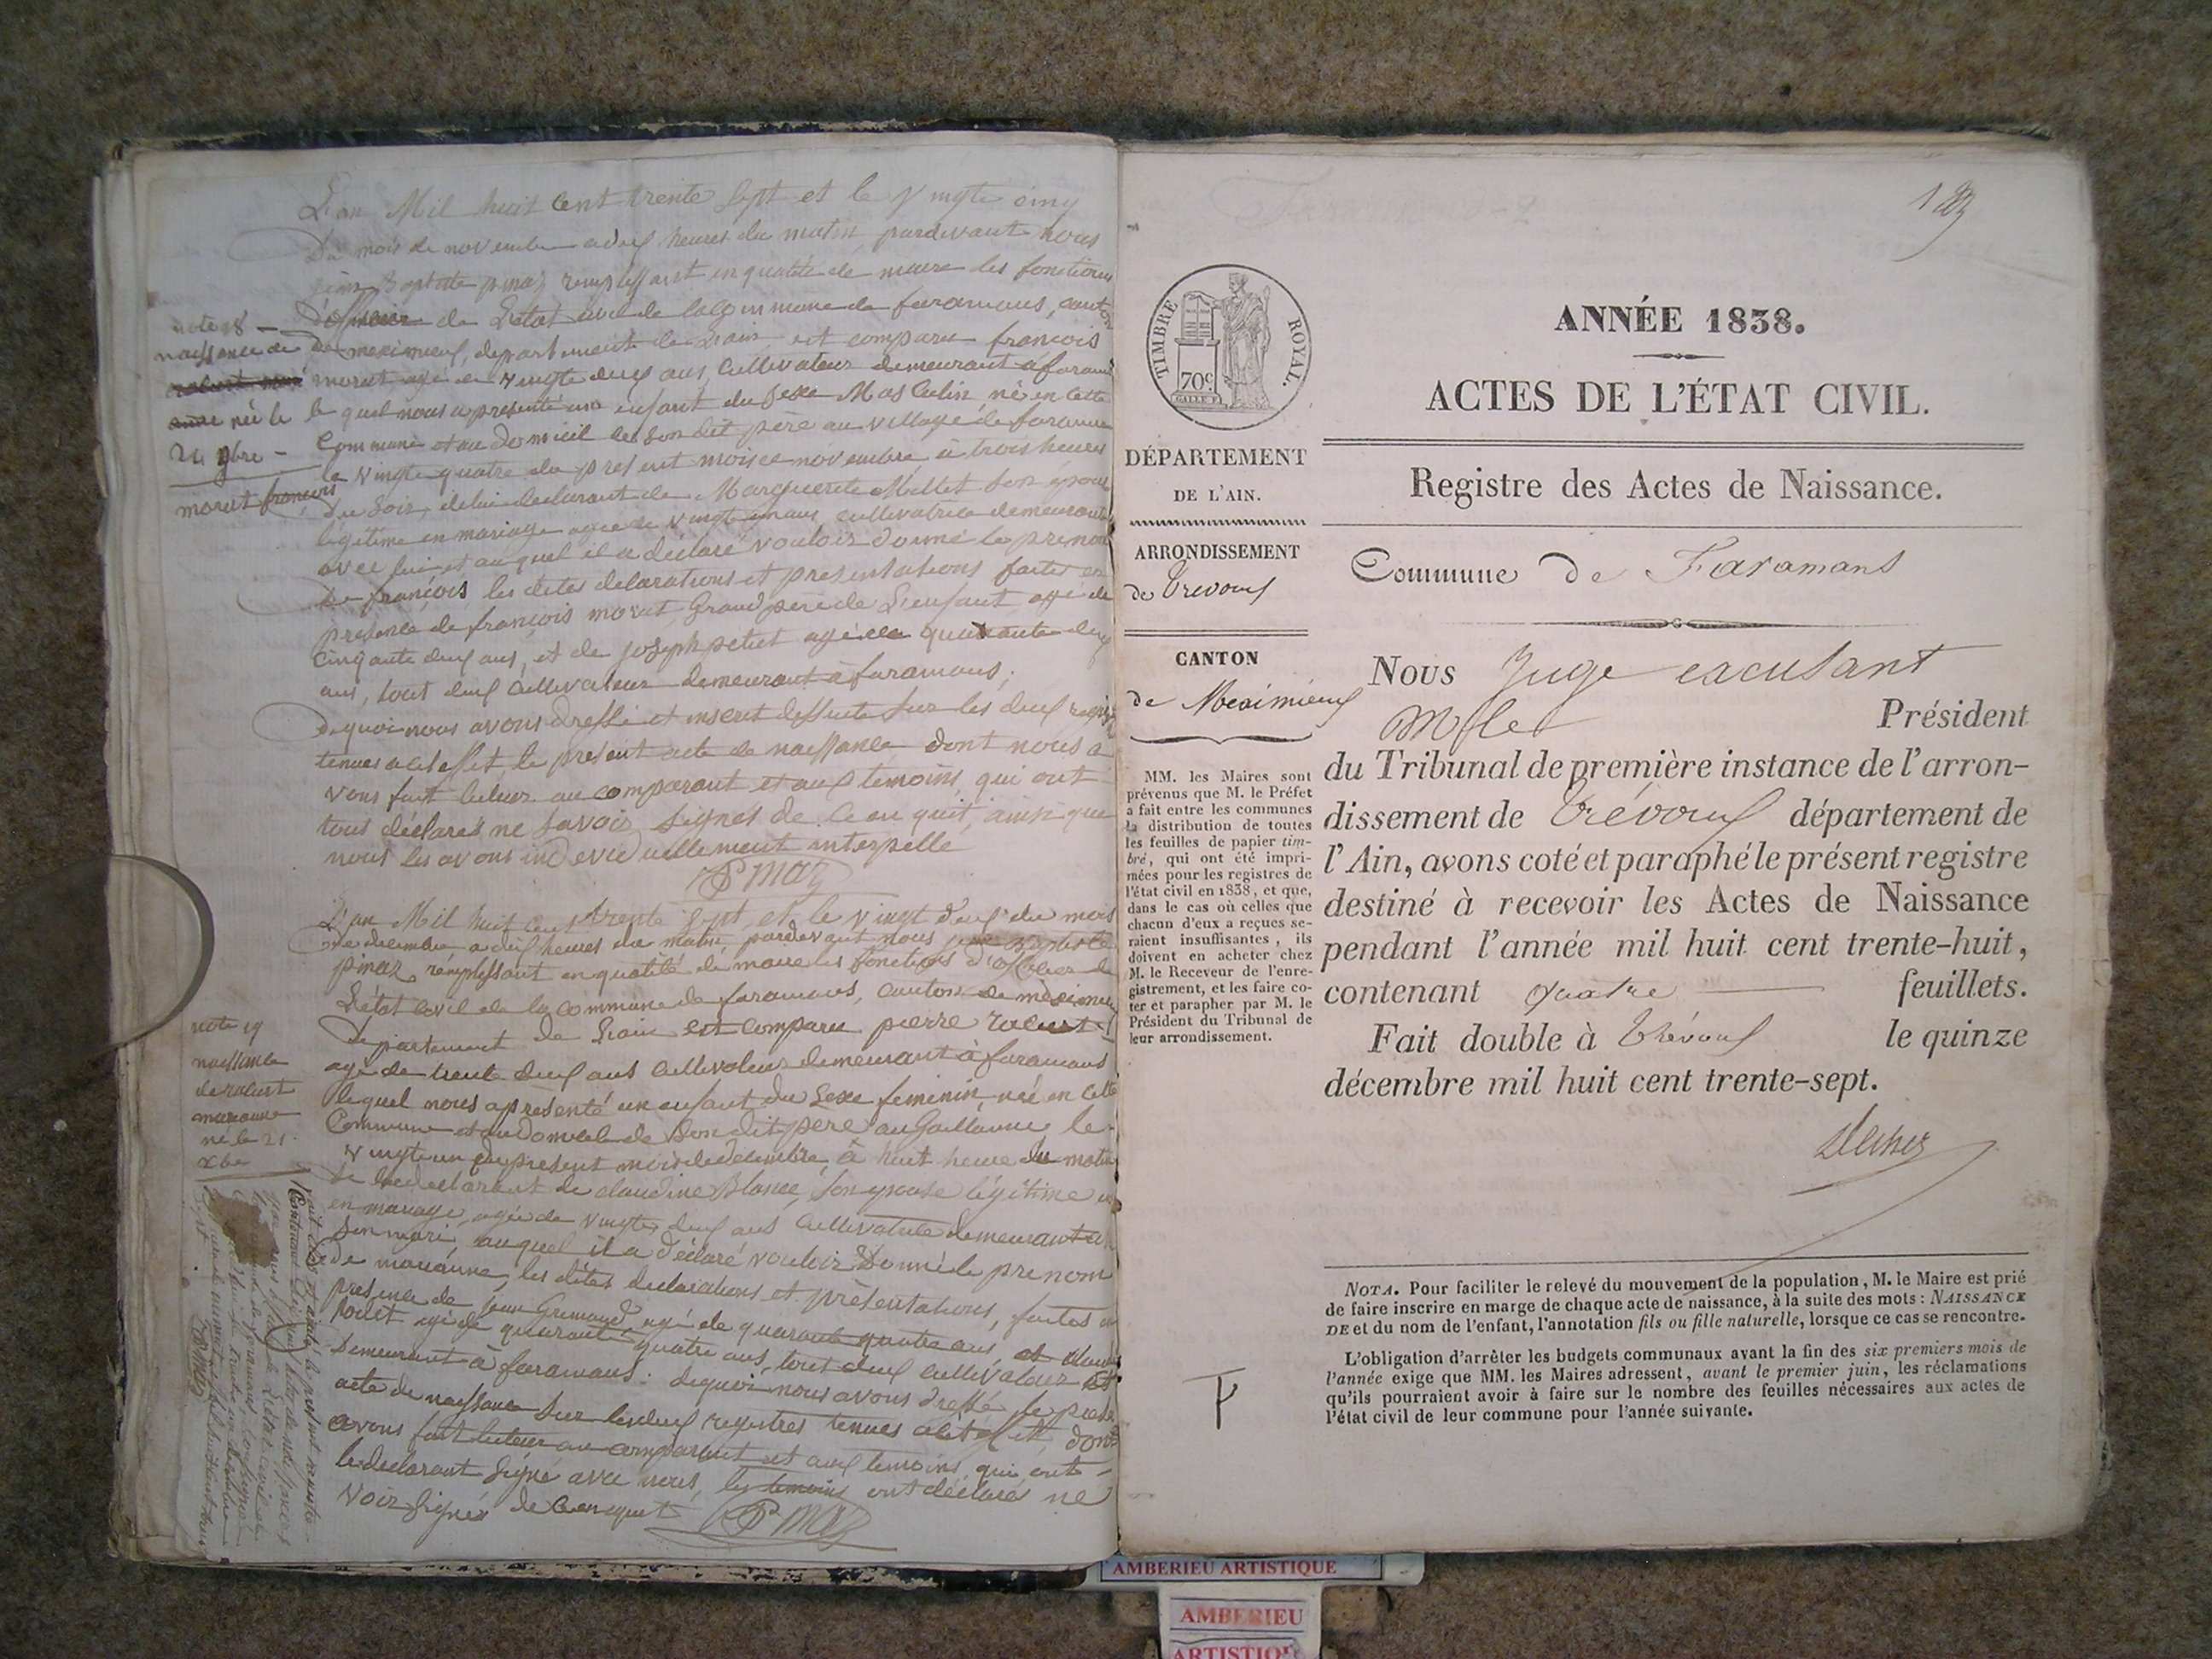 L'an Mil huit Cent trente Sept et le Vingte cinq
Du mois de novembre a deux heures du matin pardevant nous
jean Baptiste pinaz remplissant en qualité de maire les fonctions
D'officier de L'état civil de la commune de faramans, canton
De meximieux, departement de L'ain est comparu françois
morat agé de vingte deux ans, Cultivateur demeurant a faramans
le quel nous a presenté un enfant du sexe Masculin né en Cette
Commune et au Domicil de son dit père au village de faramans
le Vingte quatre du present mois de novembre à trois heures
Du Soir, de lui declarant de Marguerite Millet son épouse
légitime en mariage agée de vingte ans, cultivatrice demeurant
avec lui et auquel il a déclaré vouloir donné le prenom
De françois les dites declarations et presentations faites en
presence de françois morat, Grand père de L'enfant agé de
Cinqante deux ans, et de joseph petit agé de quarante deux
ans, tout deux Cultivateur demeurant à faramans;
De quoi nous avons dressé et inscrit desuite sur les deux registres
tenues a cet effet, le present acte de naissance dont nous a
vons fait lecture au comparant et aux temoins, qui ont
tous déclarés ne savoir signés de Ce enquit, ainsi que
nous les avons individuellement interpelle
Pinaz
note 18
naissance de
née le
24 9bre
morat françois
L'an Mil huit Cent trente Sept, et le vingt deux du mois
de decembre a dix heures du matin, pardevant nous jean Baptiste
pinaz, remplissant en qualité de maire les fonctions d'officier de
L'état Civil de la Commune de faramans, canton de meximieux
Departement de L'ain est comparu pierre
agé de trente deux ans Cultivateur demeurant à faramans
lequel nous a presenté un enfant du Sexe feminin, née en Cette
Commune et au Domicile de Son dit père au Gaillaume le
vingte un du present mois de decembre, à huit heure du matin
de lui declarant de claudine Blanc, son épouse légitime
en mariage, agée de vingte deux ans Cultivatrice demeurant
Son mari, auquel il a déclaré vouloir Donné le prenom
De marianne, les dites declarations et présentations, faites en
presence de jean Grimaud, agé de quarante quatre ans, et
agé de quarante quatre ans, tout deux cultivateur
Demeurant à faramans. De quoi nous avons dressé le present
acte de naissance sur les deux registres tenues a cet effet, dont
avons fait lecture au comparant et aux temoins, qui ont
le declarant Signé avec nous, les temoins ont déclarés ne
voir Signés de Ce enquit
Pinaz
note 19
naissance
de
marianne
né le 21
Xbre
ANNÉE 1838.
ACTES DE L'ÉTAT CIVIL.
Registre des Actes de Naissance.
Commune de Faramans
TIMBRE ROYAL.
70c
DÉPARTEMENT
DE L'AIN.
ARRONDISSEMENT
de Trevoux
CANTON
de Meximieux
MM. les Maires sont
prévenus que M. le Préfet
a fait entre les communes
la distribution de toutes
les feuilles de papier tim-
bré, qui ont été impri-
mées pour les registres de
l'état civil en 1838, et que,
dans le cas où celles que
chacun d'eux a reçues se-
raient insuffisantes, ils
doivent en acheter chez
M. le Receveur de l'enre-
gistrement, et les faire co-
ter et parapher par M. le
Président du Tribunal de
leur arrondissement.
Nous Juge excusant
M le Président
du Tribunal de première instance de l'arron-
dissement de Trévoux département de
l'Ain, avons coté et paraphé le présent registre
destiné à recevoir les Actes de Naissance
pendant l'année mil huit cent trente-huit,
contenant quatre feuillets.
Fait double à Trévoux le quinze
décembre mil huit cent trente-sept.
NOTA. Pour faciliter le relevé du mouvement de la population, M. le Maire est prié
de faire inscrire en marge de chaque acte de naissance, à la suite des mots : NAISSANCE
DE et du nom de l'enfant, l'annotation fils ou fille naturelle, lorsque ce cas se rencontre.
L'obligation d'arrêter les budgets communaux avant la fin des six premiers mois de
l'année exige que MM. les Maires adressent, avant le premier juin, les réclamations
qu'ils pourraient avoir à faire sur le nombre des feuilles nécessaires aux actes de
l'état civil de leur commune pour l'année suivante.
AMBERIEU ARTISTIQUE
AMBERIEU
ARTISTIQUE